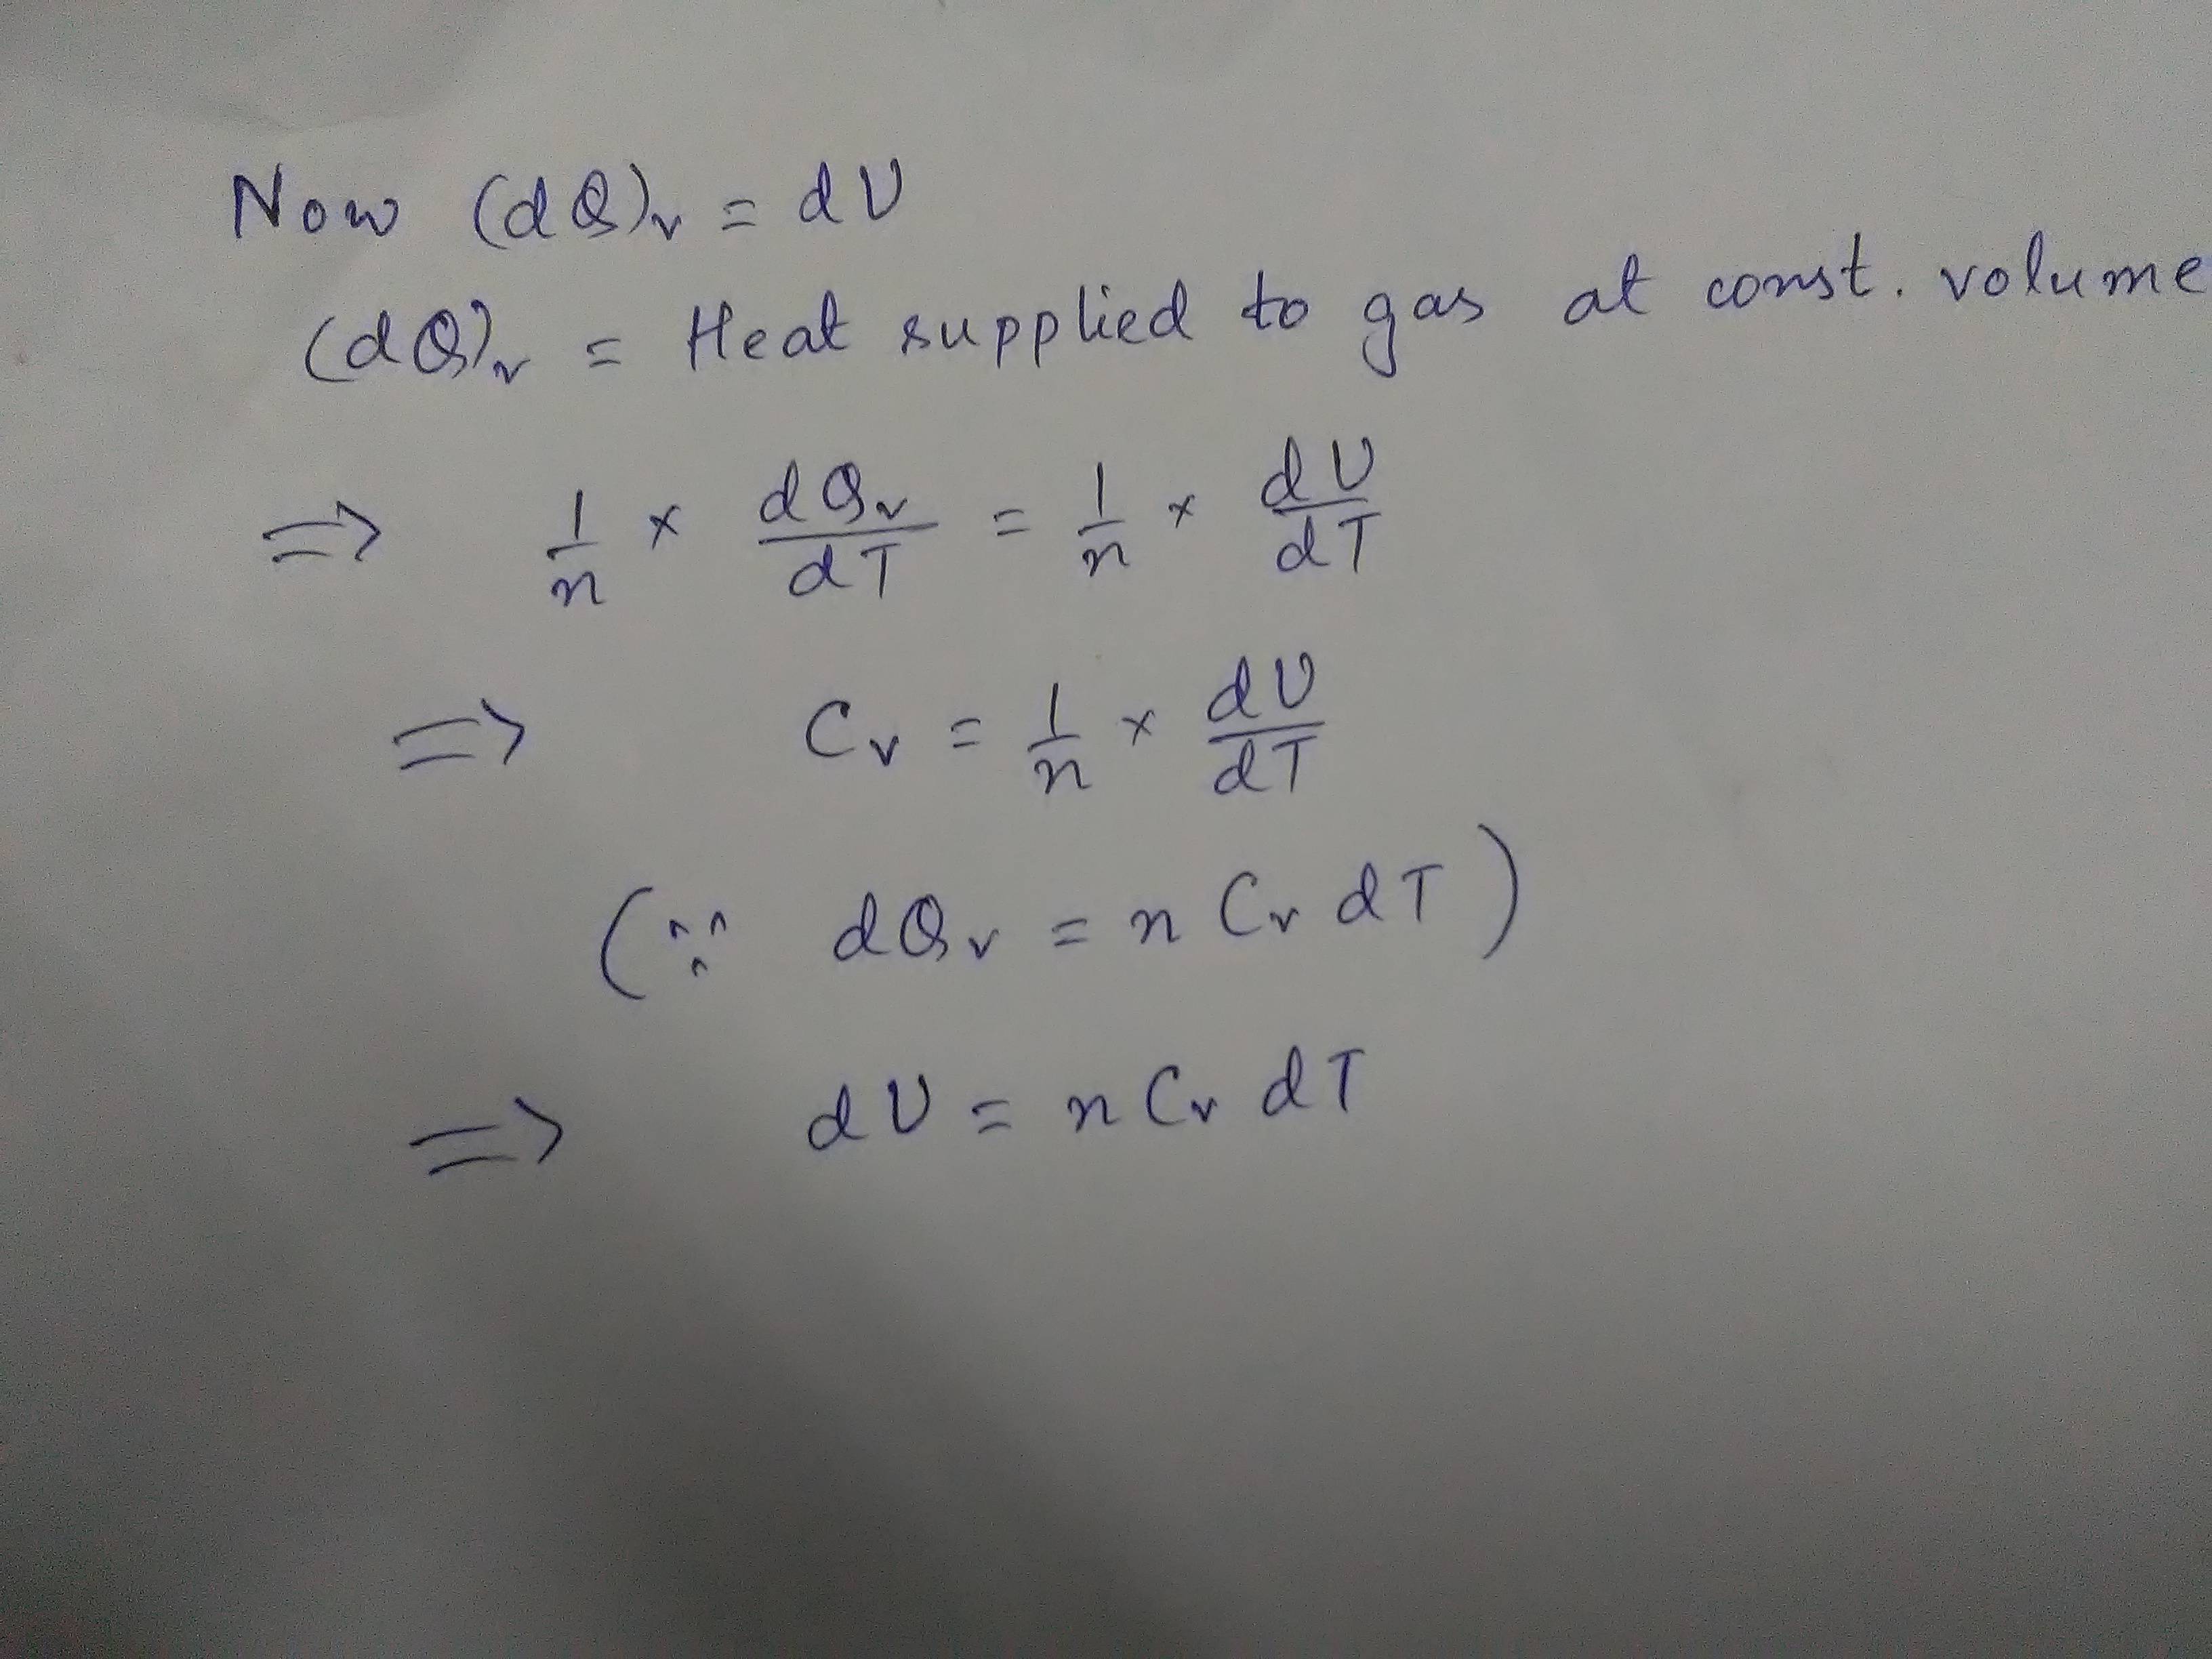 Now (dQ)ᵥ = dU
(dQ)ᵥ = Heat supplied to gas at const. volume
⇒ 1/n × dQᵥ/dT = 1/n × dU/dT
⇒ Cᵥ = 1/n × dU/dT
(∵ dQᵥ = n Cᵥ dT)
⇒ dU = n Cᵥ dT